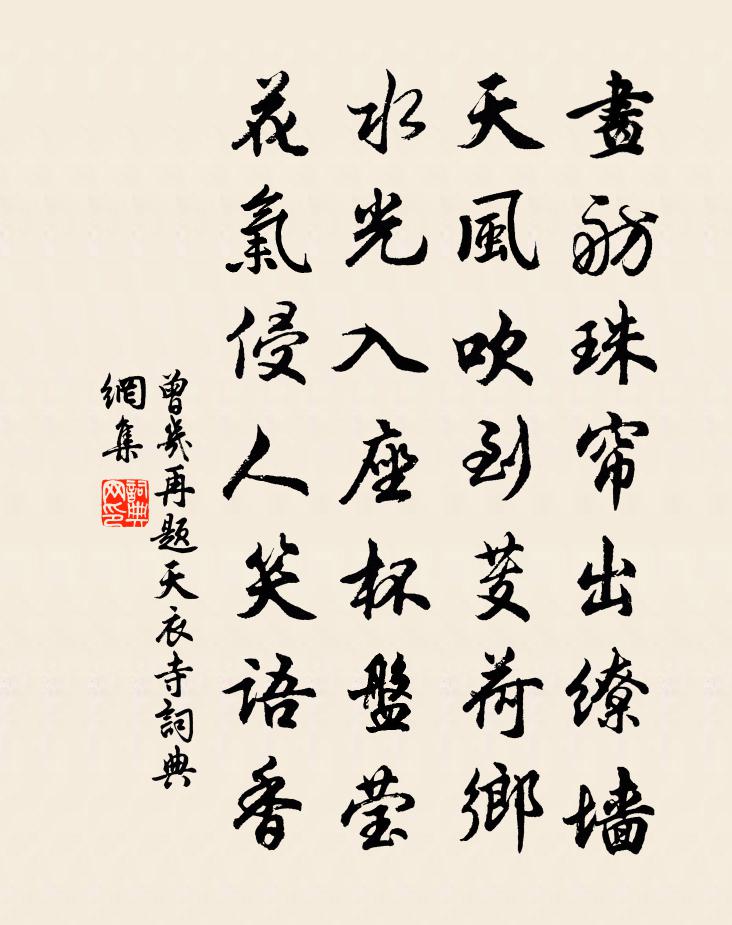 畫舫珠帘出繚墙
天風吹到芰荷鄉
水光入座杯盤莹
花氣侵人笑語香
曾幾再題天衣寺詞典
網集
詞典網印